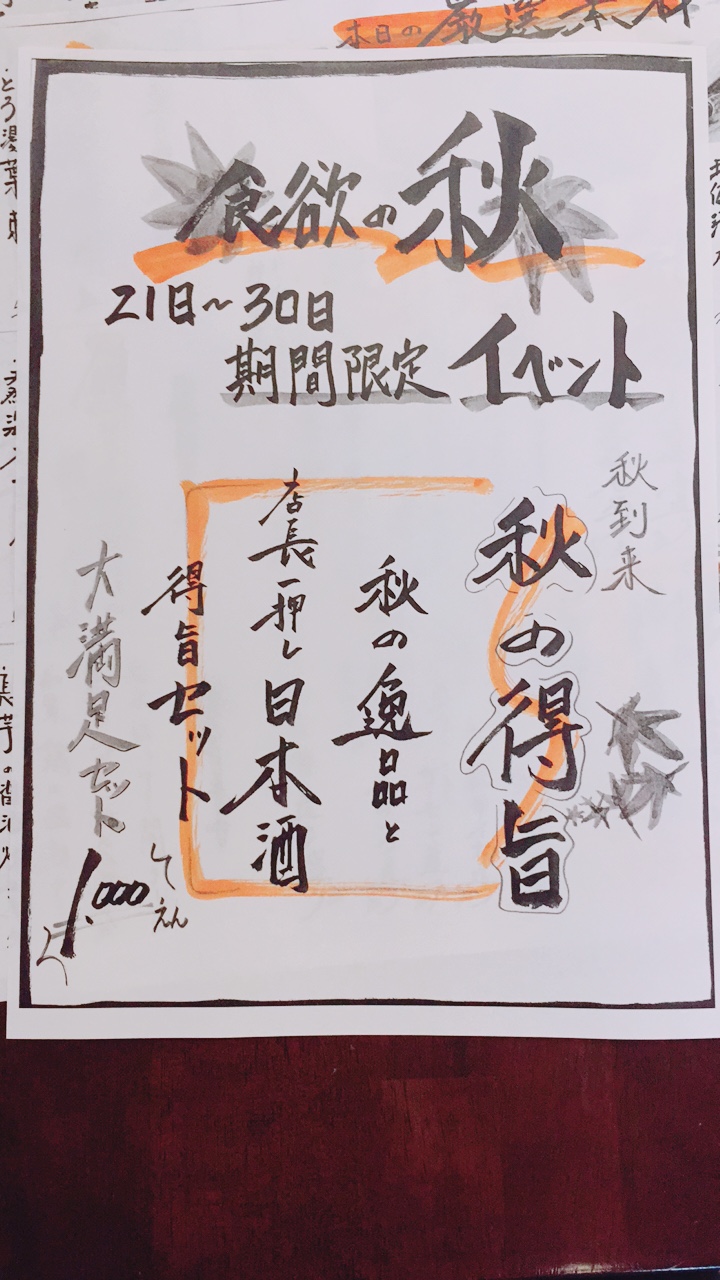 本日の厳選素材
食欲の秋
21日~30日
期間限定イベント
秋到来
秋の得旨
秋の逸品と
店長一押し日本酒
得旨セット
大満足セット
1.000えん